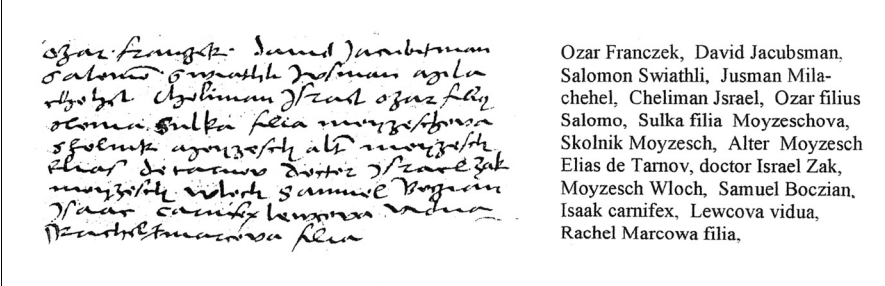 ozar franczek david Jacubsman
Salomo Swiathli Jusman
chehel Cheliman Jsrael ozar
Sulka filia moyzeschova
Skolnik moyzesch alt moyzesch
Elias de tarnov doctor Israel zak
moyzesch wloch Samuel
Isaac carnifex lewcova vidua
Rachel marcova filia
Ozar Franczek, David Jacubsman,
Salomon Swiathli, Jusman Mila-
chehel, Cheliman Jsrael, Ozar filius
Salomo, Sulka filia Moyzeschova,
Skolnik Moyzesch, Alter Moyzesch
Elias de Tarnov, doctor Israel Zak,
Moyzesch Wloch, Samuel Boczian,
Isaak carnifex, Lewcova vidua,
Rachel Marcowa filia,